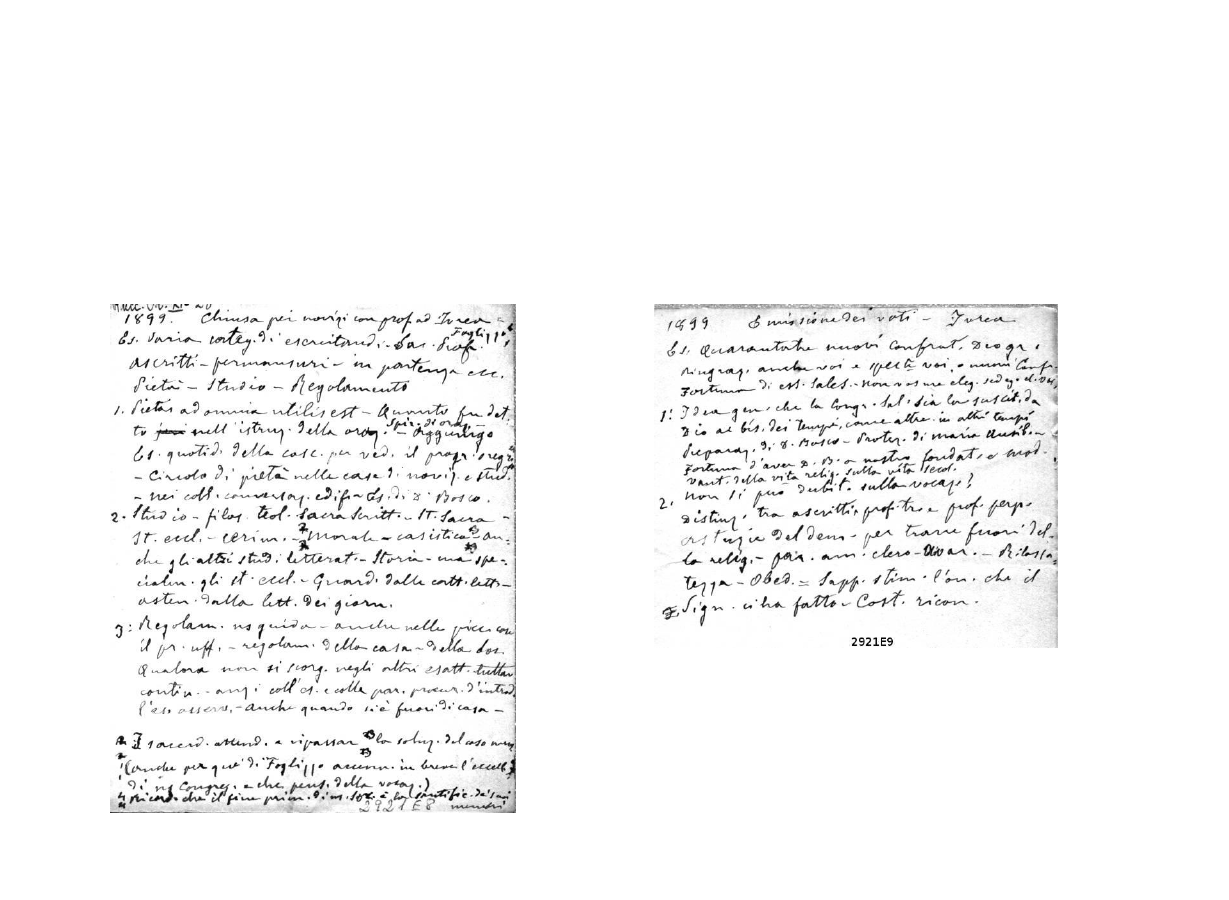 1899. Chiusa pei novizi con prof. ad Ivrea -
Es. varia categ. di esercitandi - Sac. Prof. Foglizzo
ascritti - permansuri - in partenza ecc.
Pietà - Studio - Regolamento
1. Pietas ad omnia utilis est - Quanto fu det:
to nell'istruz. della oraz. - Spir. di oraz. Aggiungo
Es. quotid. della cosc. per ved. il progr.
- Circolo di pietà nelle case di noviz. e stud.
- nei coll. conversaz. edif. - Es. di D. Bosco.
2. Studio - filos. teol. Sacra Scritt. - St. Sacra -
St. eccl. - cerim. - Morale - casistica - an:
che gli altri studi letterat. - Storia - ma spe-
cialm. gli st. eccl. - Guard. dalle catt. lett. -
asten. dalla lett. dei giorn.
3: Regolam. ns guida - anche nelle picc. cose
il pr. uff. - regolam. della casa - della Sos.
Qualora non si scorg. negli altri esatt. tuttav.
contin. - anzi coll'es. e colle par. procur. d'introd.
l'es. osserv. - anche quando si è fuori di casa -
I sacerd. attend. a ripassar la soluz. del caso
(anche per que' di Foglizzo accenn. in breve l'eccell.
di ns Congreg. e che pens. della vocaz.)
Ricord. che il fine prim. d. ns. Soc. è la santific. de' suoi
2921E8 membri
1899 Emissione dei voti - Ivrea
Es. Quarantatre nuovi confrat. Deo gr.
Ringraz. anche voi e spec. voi, o nuovi Confr.
Fortuna di ess. Sales. - non vos me eleg. sed ego el. vos,
1: Idea gen. che la Congr. Sal. sia la suscit. da
Dio ai bis. dei tempi, come altre in altri tempi
Preparaz. di D. Bosco - Protez. di Maria Ausil. -
Fortuna d'aver D. B. a nostro fondat. e mod.
Vant. della vita relig. sulla vita secol.
2. Non si può dubit. sulla vocaz?
Distinz. tra ascritti, prof. tr. e prof. perp.
astuzie del dem. per trarre fuori del-
la relig. - par. am. clero - - Rilassa-
tezza - Obed. = Sapp. stim. l'on. che il
Sign. ci ha fatto - Cost. ricon.
2921E9